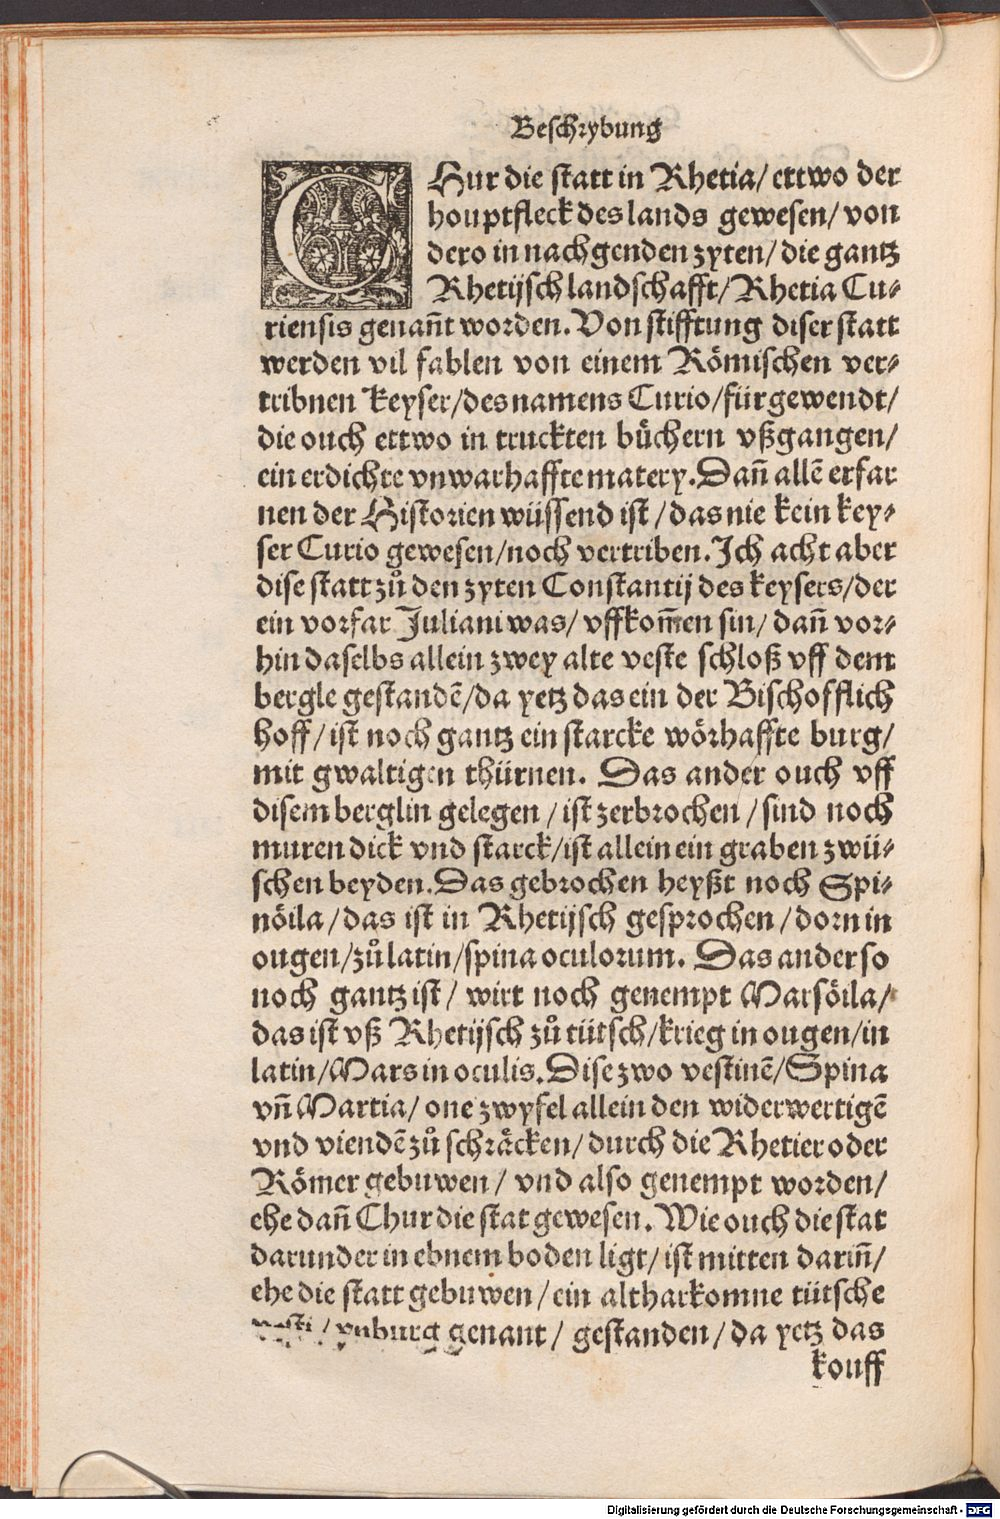 Beschrybung
CHur die statt in Rhetia/ ettwo der
houptfleck des lands gewesen/ von
dero in nachgenden zyten/ die gantz
Rhetijsch landschafft/ Rhetia Cu⸗
riensis genañt worden. Von stifftung diser statt
werden vil fablen von einem Römischen ver⸗
tribnen keyser/ des namens Curio/ fürgewendt/
die ouch ettwo in truckten bůchern vßgangen/
ein erdichte vnwarhaffte matery. Dañ allē erfar
nen der Historien wüssend ist/ das nie kein key⸗
ser Curio gewesen/ noch vertriben. Ich acht aber
dise statt zů den zyten Constantij des keysers/ der
ein vorfar Juliani was/ vffkom̄en sin/ dañ vor⸗
hin daselbs allein zwey alte veste schloß vff dem
bergle gestandē/ da yetz das ein der Bischofflich
hoff/ ist noch gantz ein starcke wörhaffte burg/
mit gwaltigen thürnen. Das ander ouch vff
disem berglin gelegen/ ist zerbrochen/ sind noch
muren dick vnd starck/ ist allein ein graben zwü⸗
schen beyden. Das gebrochen heyßt noch Spi⸗
nöila/ das ist in Rhetijsch gesprochen/ dorn in
ougen/ zů latin/ spina oculorum. Das ander so
noch gantz ist/ wirt noch genempt Marsöila/
das ist vß Rhetijsch zů tütsch/ krieg in ougen/ in
latin/ Mars in oculis. Dise zwo vestinē/ Spina
vñ Martia/ one zwyfel allein den widerwertigē
vnd viendē zů schräcken/ durch die Rhetier oder
Römer gebuwen/ vnd also genempt worden/
ehe dañ Chur die stat gewesen. Wie ouch die stat
darunder in ebnem boden ligt/ ist mitten dariñ/
ehe die statt gebuwen/ ein altharkomne tütsche
vesti/ ynburg genant/ gestanden/ da yetz das
kouff
Digitalisierung gefördert durch die Deutsche Forschungsgemeinschaft - DFG